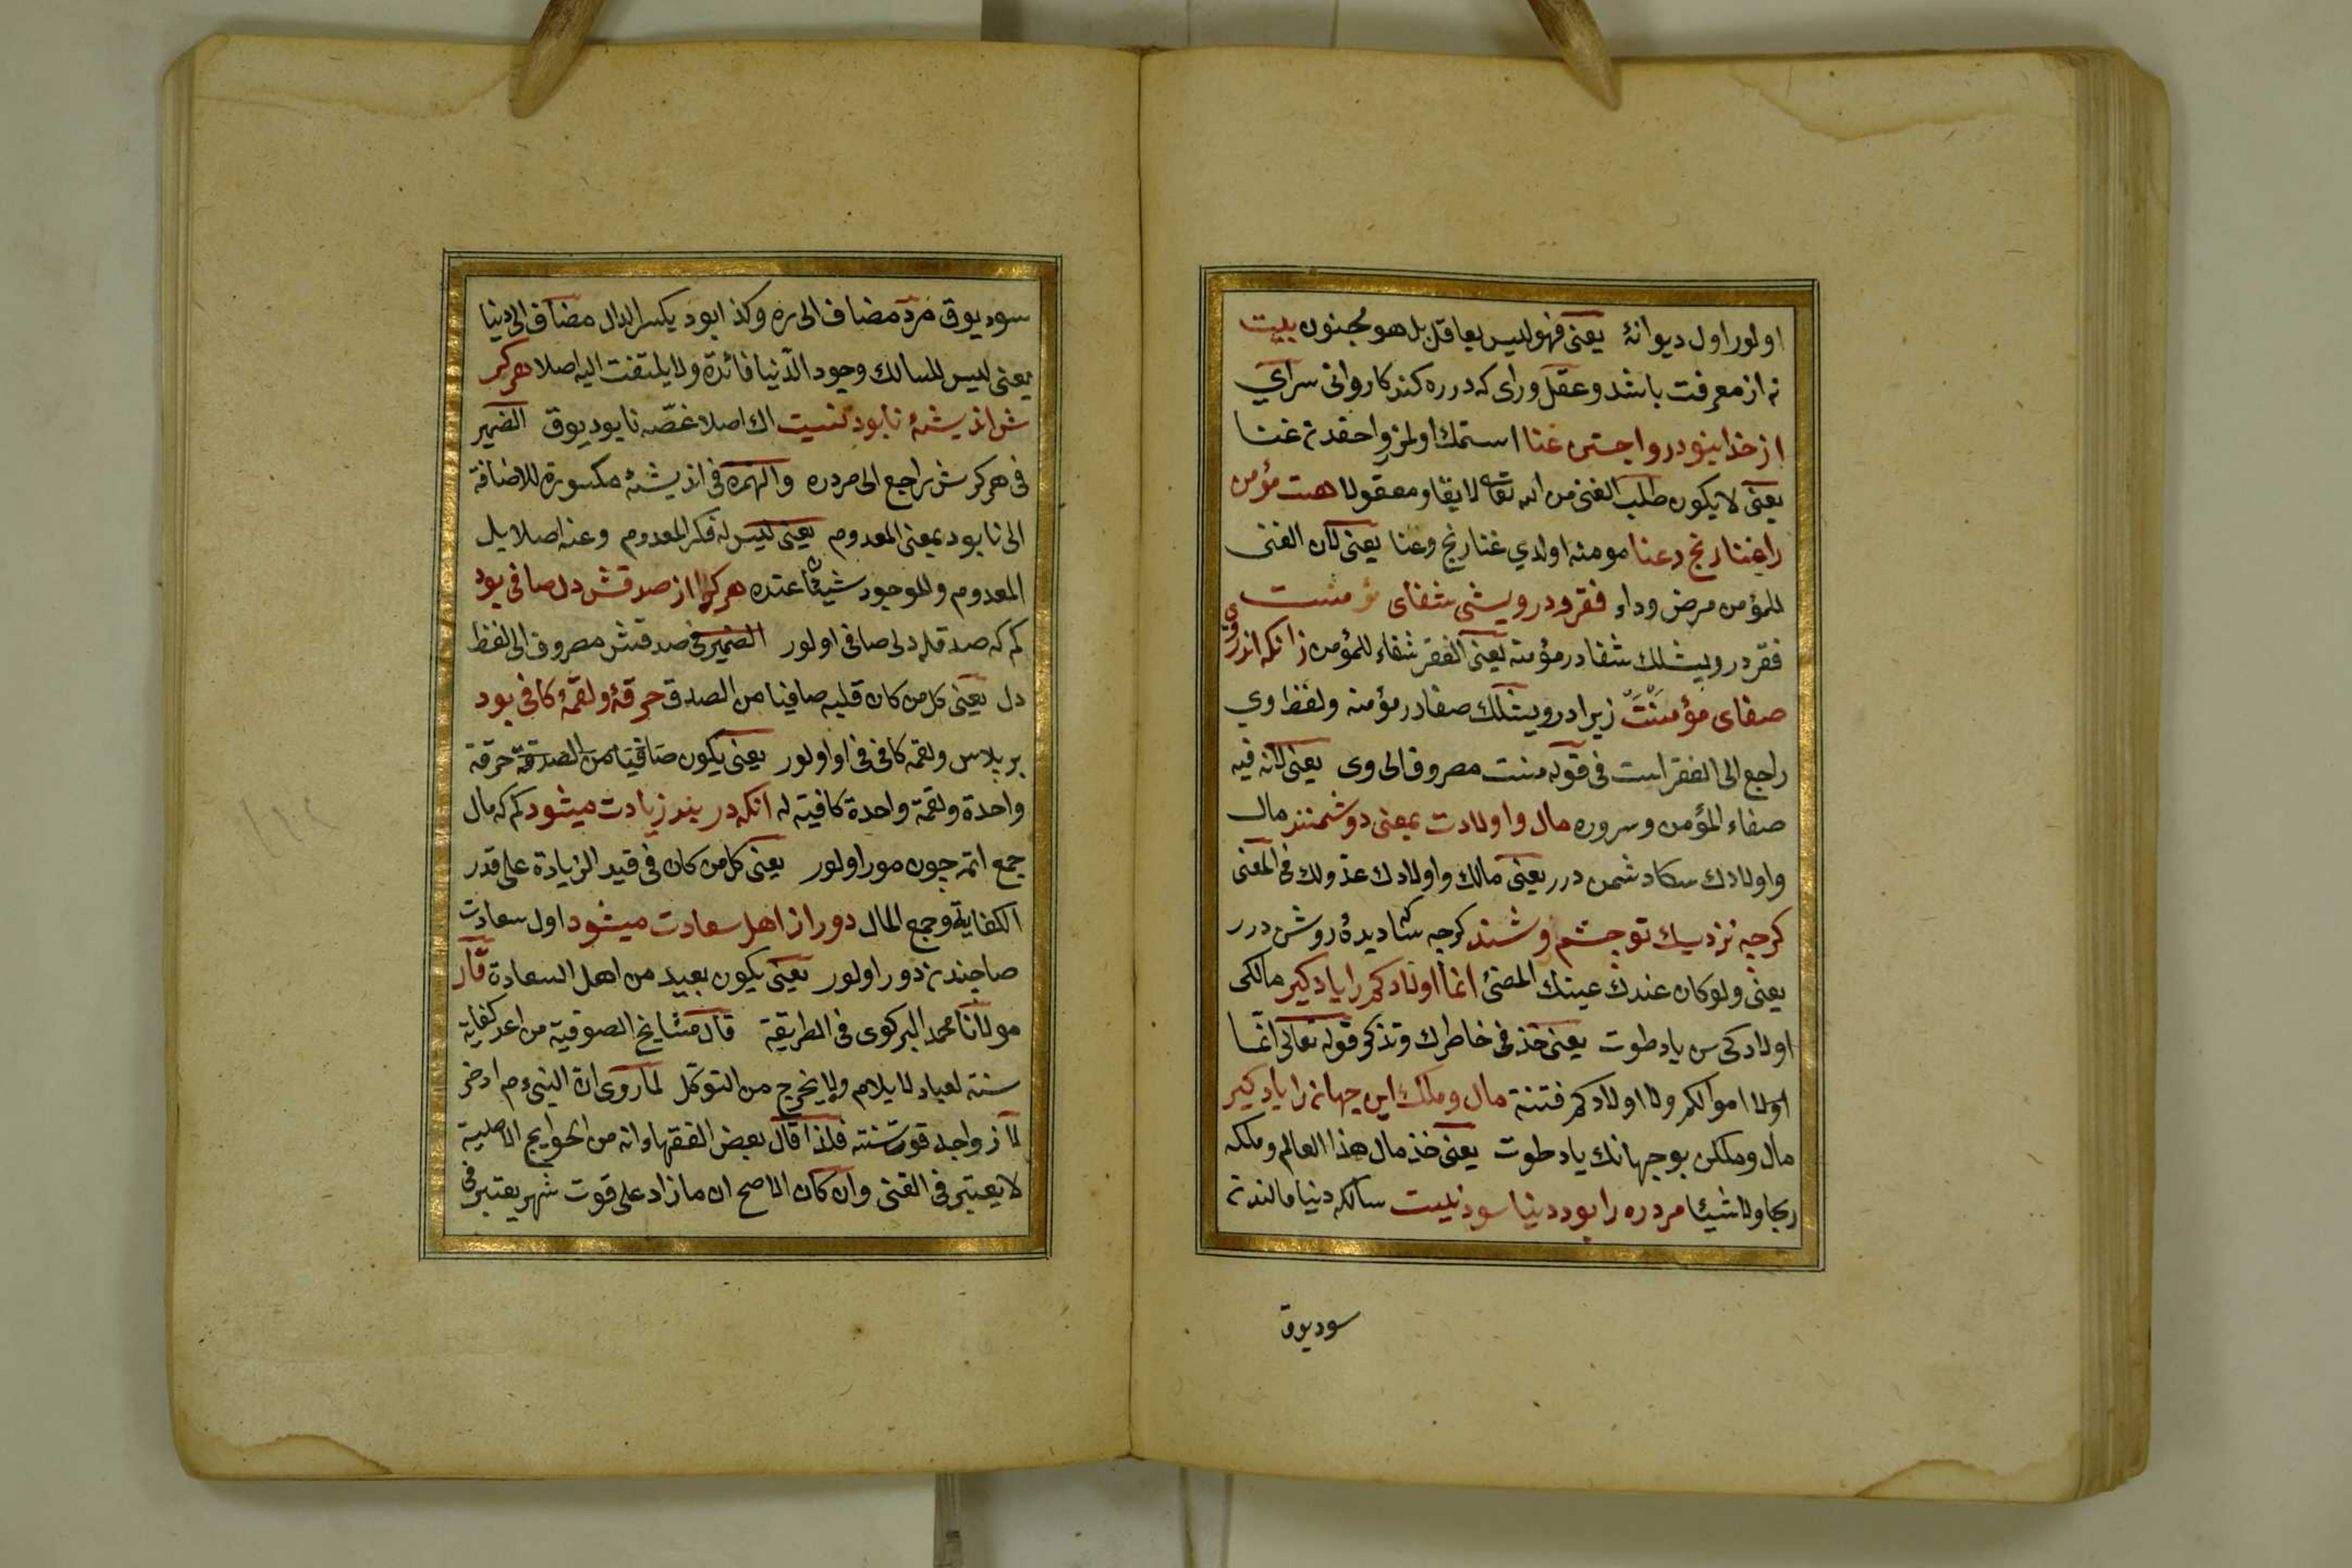 اولور اول ديوانۀ يعنى فهو ليس بعاقل بل هو مجنون بيت
نه از معرفت باشد وعقل وراى كه در ره كند كاروانى سراي
از خدا نبود روا جستن غنا استمك اولمز روا حقدن غنا
يعنى لا يكون طلب الغنى من الله تعالى لايقا ومعقولا هست مؤمن
را غنا رنج وعنا مومنه اولدي غنا رنج وعنا يعنى كان الغنى
للمؤمن مرض وداء فقر ودرويشى شفاى مؤمنست
فقر درويشلك شفادر مؤمنه يعنى الفقر شفاء للمؤمن زانكه اندر وي
صفاى مؤمنست زيرا درويشلك صفادر مؤمنه ولفظ وي
راجع الى الفقر است فى قوله منست مصروف الى وى يعنى لانه فيه
صفاء المؤمن وسروره مال واولادت بمعنى دوشمنند مال
واولادك سكا دشمن درر يعنى مالك واولادك عدولك فى المعنى
كرچه نزديك تو چشم روشنند كرچه سكا ديدۀ روشن درر
يعنى ولو كان عندك عينك المضئ انما اولادكم را ياد كير مالكى
اولادكى سن ياد طوت يعنى خذ فى خاطرك وتذكر قوله تعالى انما
اولا اموالكم ولا اولادكم فتنة مال وملك اين جهانرا ياد كير
مال وملكن بو جهانك ياد طوت يعنى خذ مال هذا العالم وملكه
ريحا ولا شيئا مرد ره را بود دنيا سود نيست سالكه دنيا مالندن
سود يوق
سود يوق مرد مضاف الى ره وكذا بود بكسر الدال مضاف الى دنيا
يعنى ليس للسالك وجود الدنيا فائدة ولا يلتفت اليه اصلا هر كز
ش انديشۀ نابود نيست اك اصلا غصّه نابود يوق الضمير
فى هركزش راجع الى مرد ره والهمزه فى انديشۀ مكسورة للاضافة
الى نابود بمعنى المعدوم يعنى ليس له فكر المعدوم وعنه اصلا بل
المعدوم والموجود شيئا عنده هر كرا از صدقش دل صافى بود
كم كه صدقله دلى صافى اولور الضمير فى صدقش مصروف الى لفظ
دل يعنى كل من كان قلبه صافيا من الصدق خرقۀ ولقمۀ كافى بود
بر پلاس ولقمه كافى فى اولور يعنى يكون صافيا من الصدقة خرقة
واحدة ولقمة واحدة كافية له آنكه در بند زيادت ميشود كم كه مال
جمع اتمه چون مور اولور يعنى كل من كان فى قيد الزيادة على قدر
الكفاية وجمع المال دور از اهل سعادت ميشود اول سعادت
صاحبندن دور اولور يعنى يكون بعيد من اهل السعادة قال
مولانا محمد البركوى فى الطريقة قال مشايخ الصوفية من اعد كفاية
سنته لعياله لا يلام ولا يخرج من التوكل لما روى ان النبى عم ادخر
لازواجه قوت سنته فلذا قال بعض الفقهاء انه من الحوايج الاصلية
لا يعتبر فى الغنى وان كان الاصح ان ما زاد على قوت شهر يعتبر فى